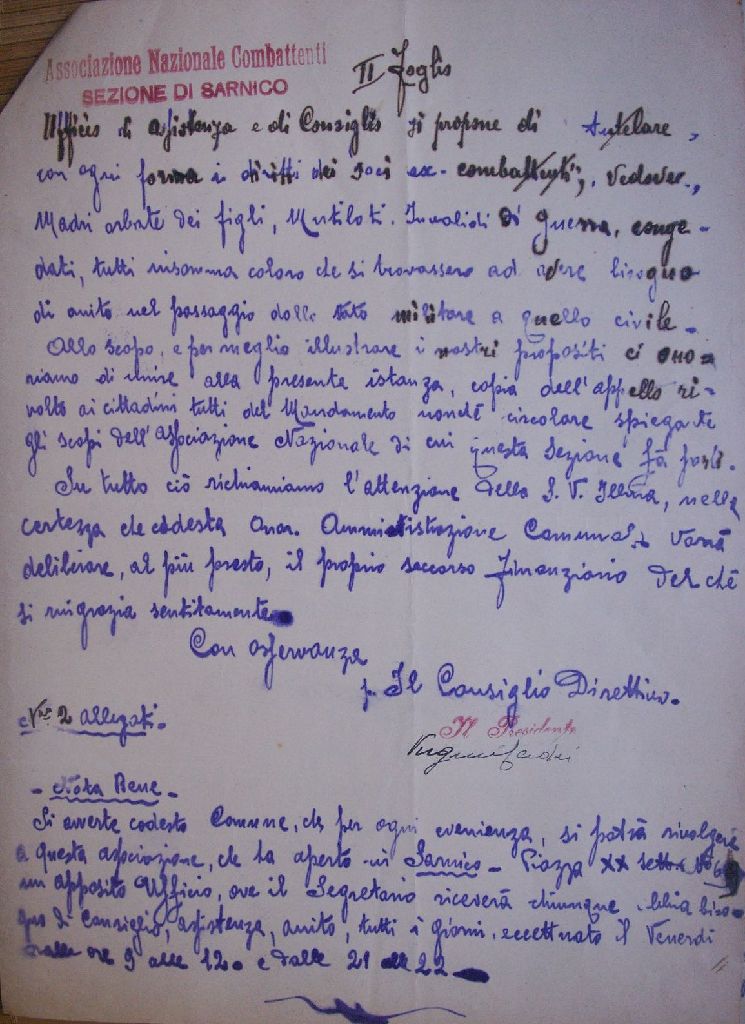 Associazione Nazionale Combattenti
SEZIONE DI SARNICO
II Foglio
Ufficio di assistenza e di Consiglio si propone di tutelare,
con ogni forma i diritti dei soci ex-combattenti, Vedove,
Madri orbate dei figli, Mutilati. Invalidi di guerra, conge-
dati, tutti insomma coloro che si trovassero ad avere bisogno
di aiuto nel passaggio dallo stato militare a quello civile.
Allo scopo, e per meglio illustrare i nostri propositi ci ono=
riamo di unire alla presente istanza, copia dell'appello ri-
volto ai cittadini tutti del Mandamento nonchè circolare spiegante
gli scopi dell'Associazione Nazionale di cui questa Sezione fà parte.
Su tutto ciò richiamiamo l'attenzione della S. V. Ill.ma, nella
certezza che codesta Onor. Amministrazione Comunale vorrà
deliberare, al più presto, il proprio soccorso finanziario del chè
si ringrazia sentitamente
Con osservanza
p. Il Consiglio Direttivo.
N.ro 2 allegati.
Il Presidente
- Nota Bene -
Si avverte codesto Comune, che per ogni evenienza, si potrà rivolgere
a questa associazione, che ha aperto in Sarnico - Piazza XX Settembre
un apposito Ufficio, ove il Segretario riceverà chiunque abbia biso=
gno di Consiglio, assistenza, aiuto, tutti i giorni, eccettuato il Venerdi
dalle ore 9 alle 12. e dalle 21 alle 22